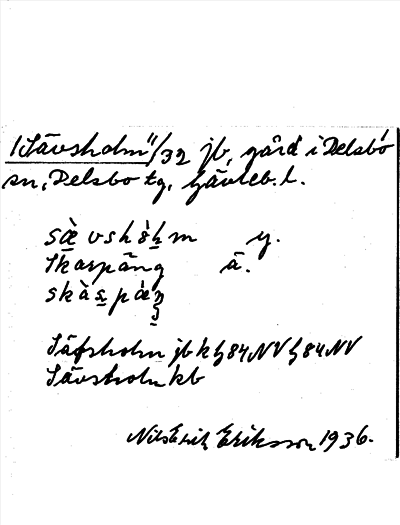 "Sävsholm"/32 jb, gård i Delsbo
sn, Delsbo tg, Gävleb. l.
sæ̀vshòlm y.
Skaspäng ä.
skàspæŋ
Säfsholm jb k G84NV G84NV
Sävsholm kb
Nils Erik Eriksson 1936.